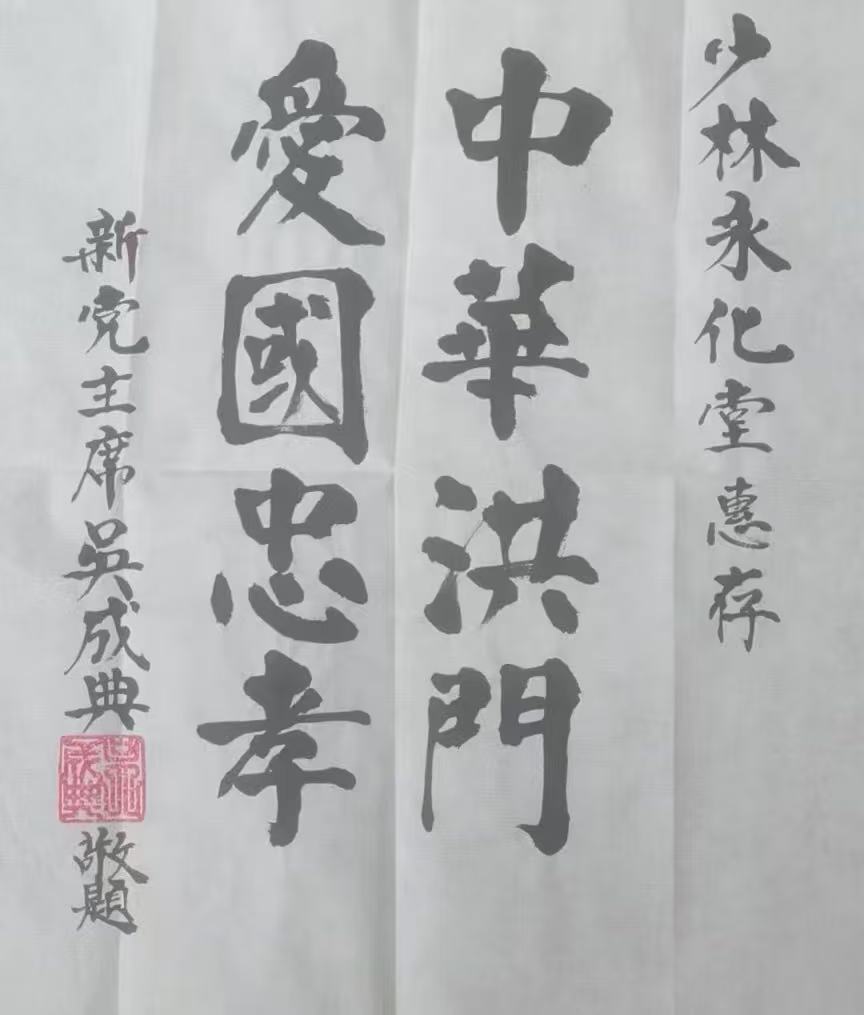 少林永化堂惠存
中華洪門
愛國忠孝
新党主席吳成典
敬題